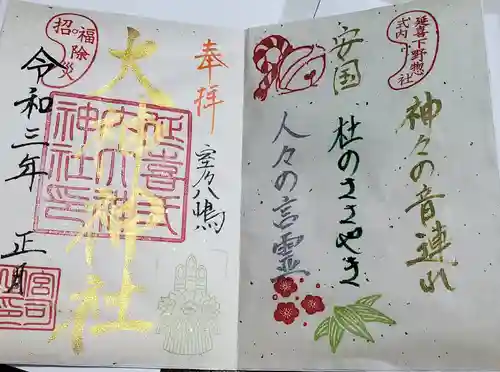 延喜下野惣
式内[小]社
神々の音連れ
安国
杜のささやき
人々の言霊
奉拝
室の八嶋
大神神社
延喜式
内大神
神社印
招福除災
令和三年
正月
宮司